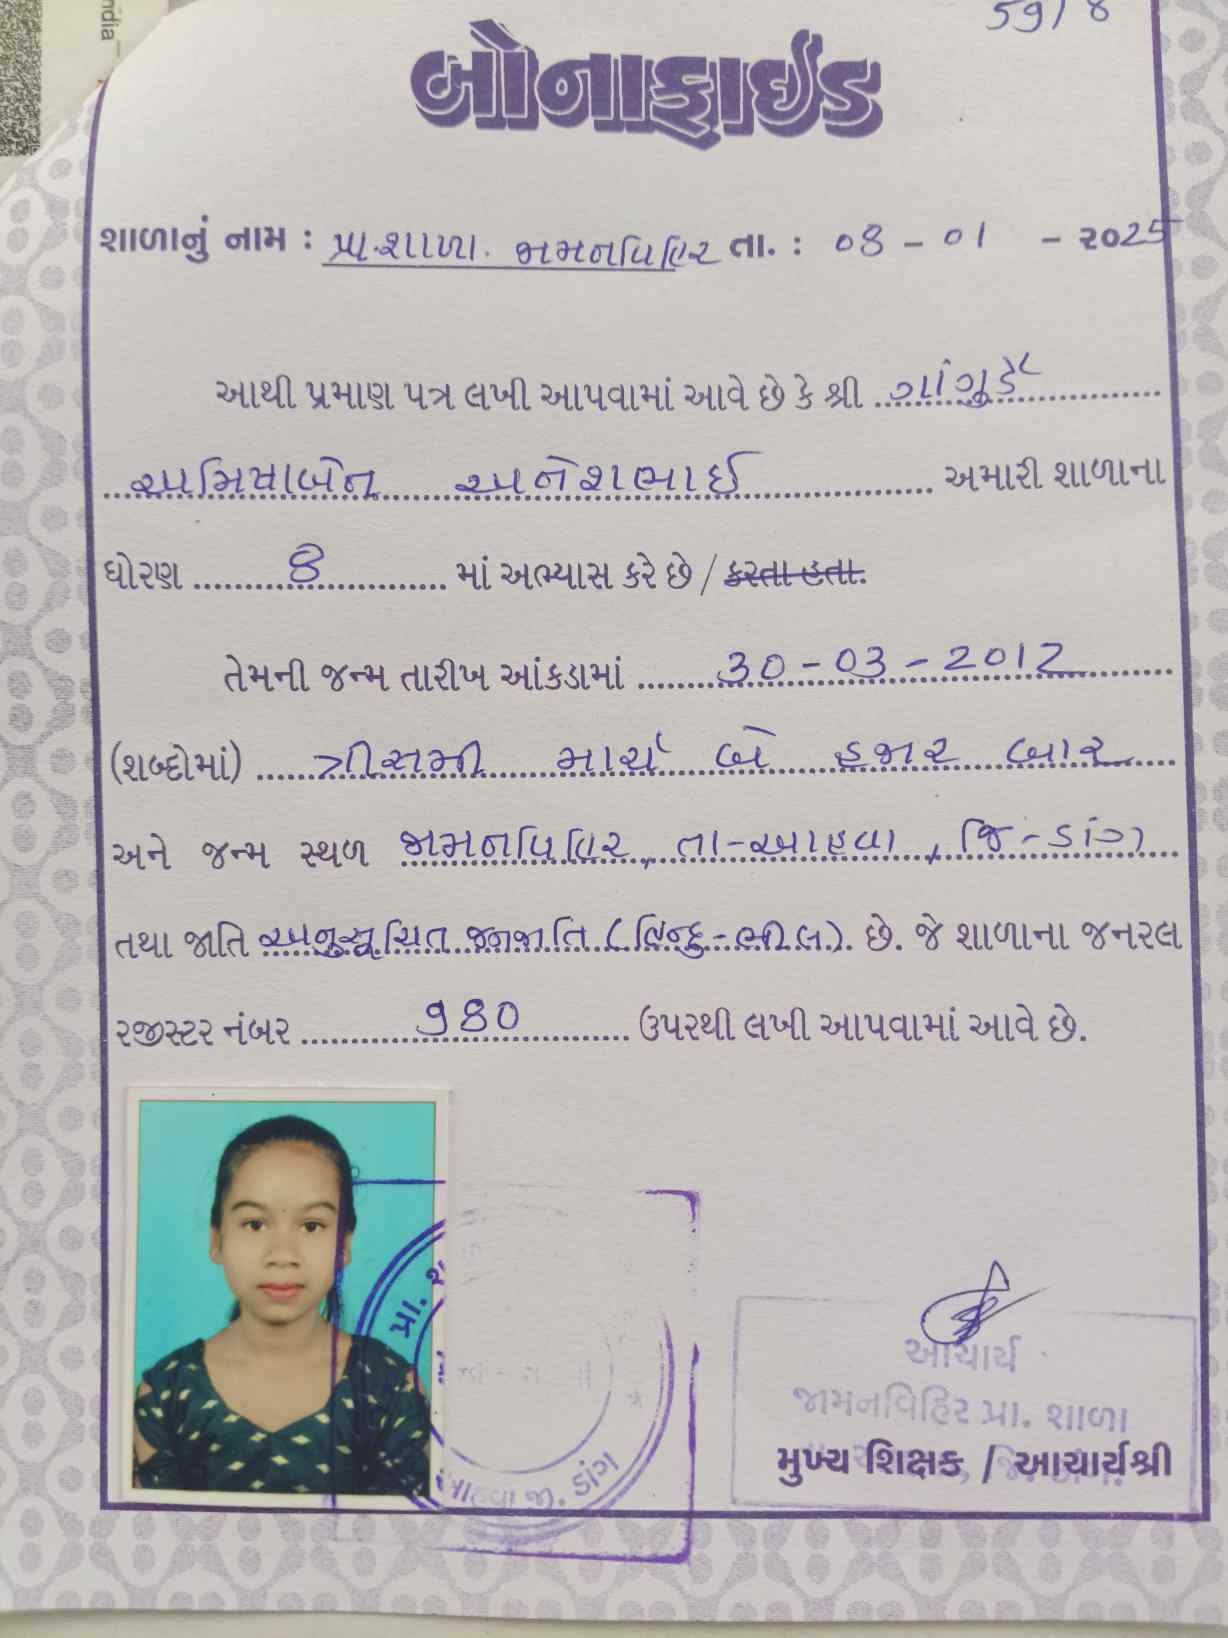 ndia
59/8
બોનાફાઈડ
શાળાનું નામ : પ્રા.શાળા. જામનવિહિર તા. : 08 - 01 - ૨૦25
આથી પ્રમાણ પત્ર લખી આપવામાં આવે છે કે શ્રી ગાંગુર્ડે
અમિષાબેન અનેશભાઈ અમારી શાળાના
ધોરણ 8 માં અભ્યાસ કરે છે / કરતા હતા.
તેમની જન્મ તારીખ આંકડામાં 30-03-2012
(શબ્દોમાં) ત્રીસમી માર્ચ બે હજાર બાર
અને જન્મ સ્થળ જામનવિહિર, તા-આહવા, જિ-ડાંગ
તથા જાતિ અનુસૂચિત જનજાતિ (હિન્દુ-ભીલ). છે. જે શાળાના જનરલ
રજીસ્ટર નંબર 980 ઉપરથી લખી આપવામાં આવે છે.
પ્રા.
આહવા જી. ડાંગ
આચાર્ય
જામનવિહિર પ્રા. શાળા
મુખ્ય શિક્ષક / આચાર્યશ્રી